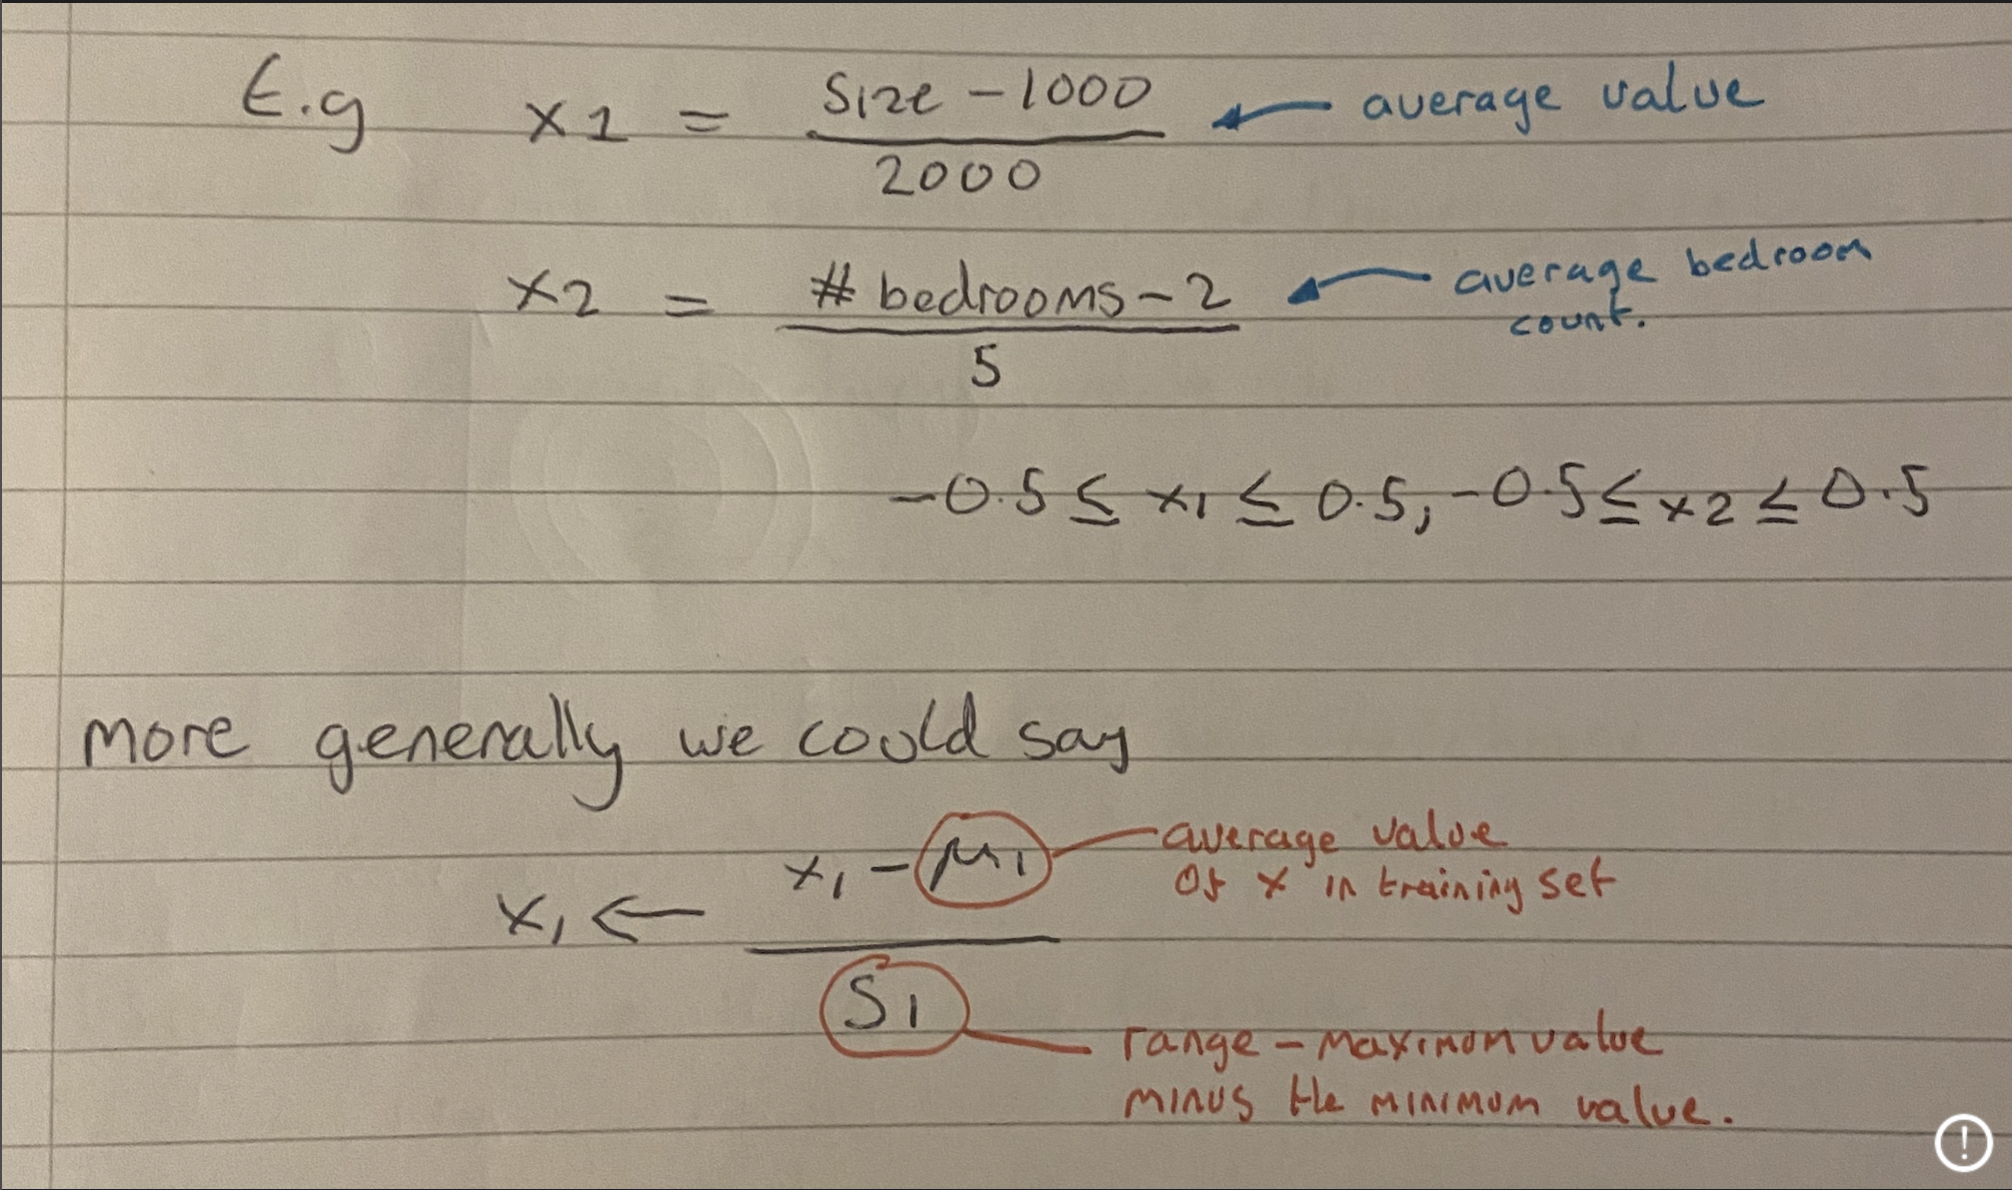 E.g x1 = size - 1000 ← average value
2000
x2 = # bedrooms - 2 ← average bedroom
count.
5
-0.5 ≤ x1 ≤ 0.5, -0.5 ≤ x2 ≤ 0.5
more generally we could say
x1 ← x1 - μ1 average value
of x in training set
S1
range - maximum value
minus the minimum value.